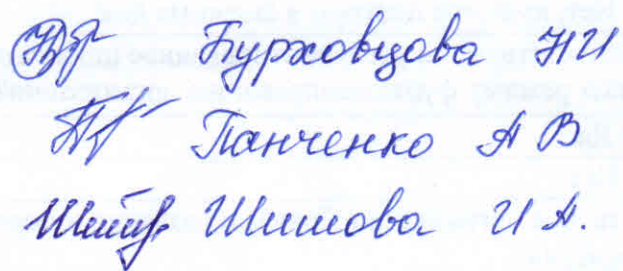 Бурховцова НИ
Панченко А В
Шишова И А.